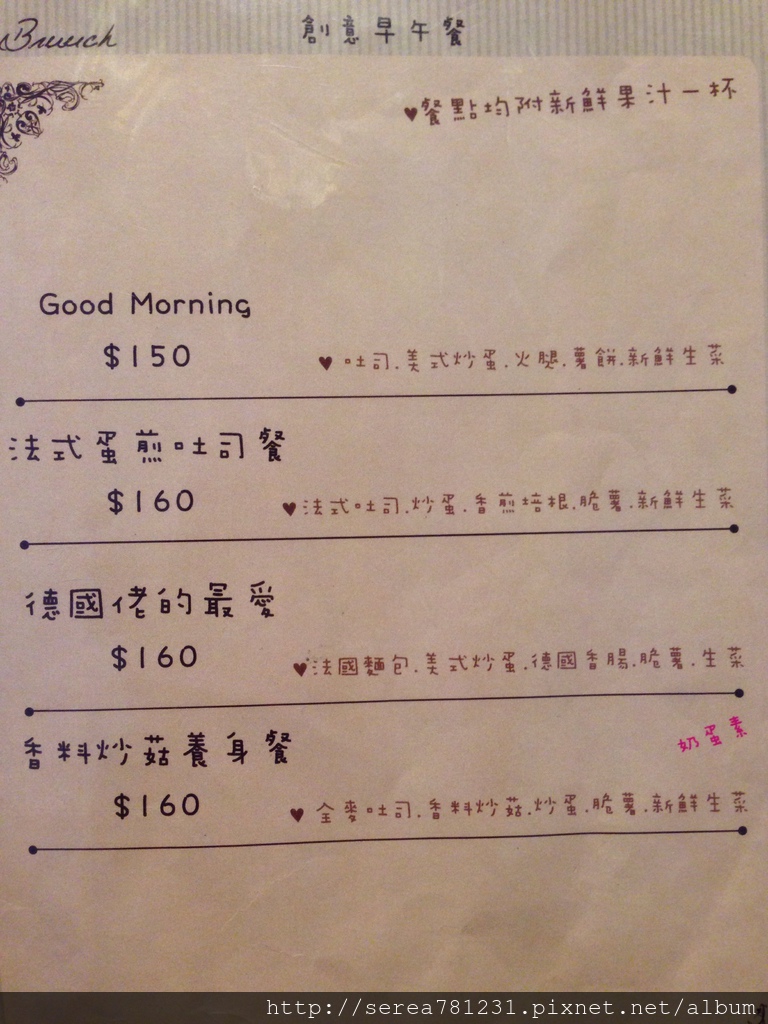 Brunch 創意早午餐
♥餐點均附新鮮果汁一杯
Good Morning
$150 ♥吐司.美式炒蛋.火腿.薯餅.新鮮生菜
法式蛋煎吐司餐
$160 ♥法式吐司.炒蛋.香煎培根.脆薯.新鮮生菜
德國佬的最愛
$160 ♥法國麵包.美式炒蛋.德國香腸.脆薯.生菜
奶蛋素
香料炒菇養身餐
$160 ♥全麥吐司.香料炒菇.炒蛋.脆薯.新鮮生菜
http://serea781231.pixnet.net/album